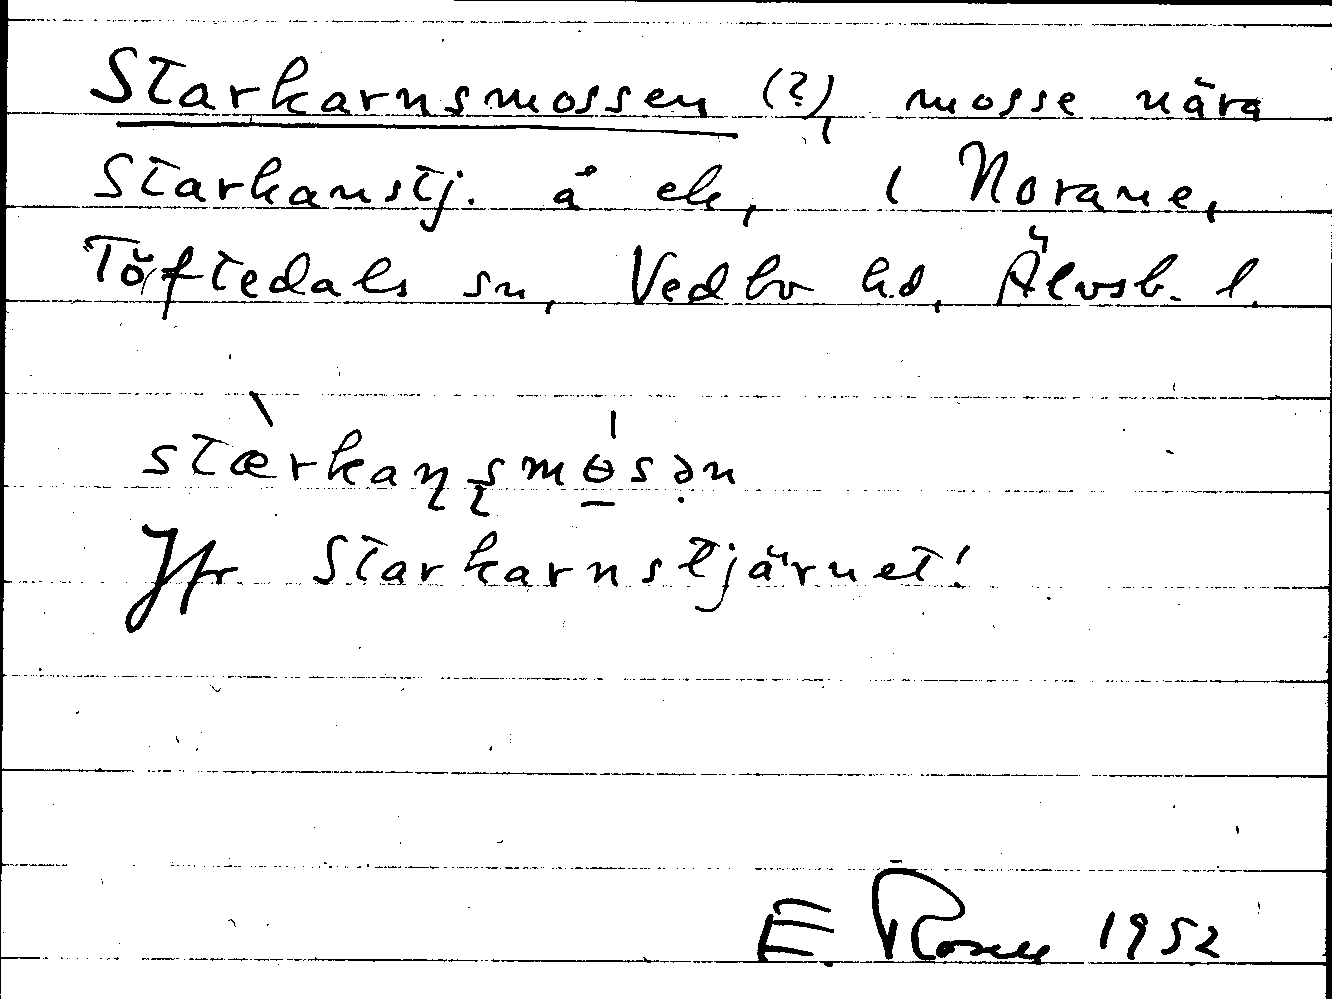 Starkarnsmossen (?), mosse nära
Starkanstj. å ek, i Norane,
Töftedals sn, Vedbo hd, Älvsb. l.
stæ̀rkaɳʂmɵ̱́sən
Jfr Starkarnstjärnet!
E. Rosell 1952